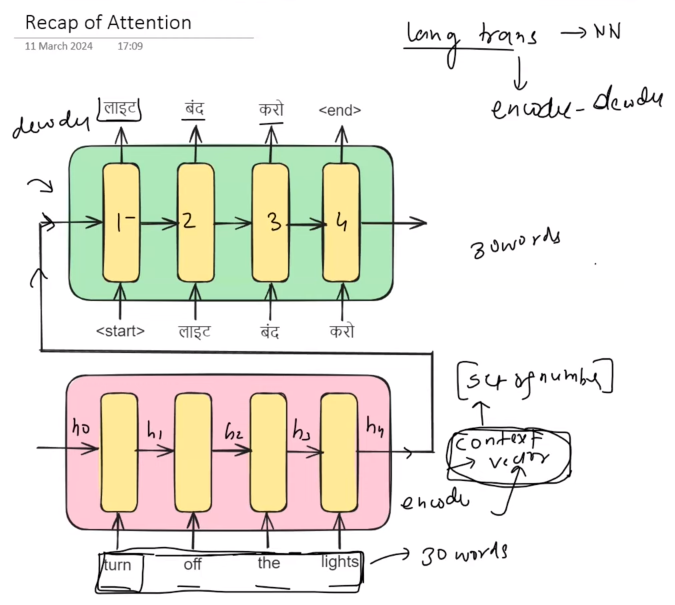 Recap of Attention
11 March 2024 17:09
lang trans → NN
encode - decode
decode
लाइट बंद करो <end>
1 2 3 4
30 words
<start> लाइट बंद करो
[set of number]
h0 h1 h2 h3 h4
context
vector
encode
turn off the lights → 30 words